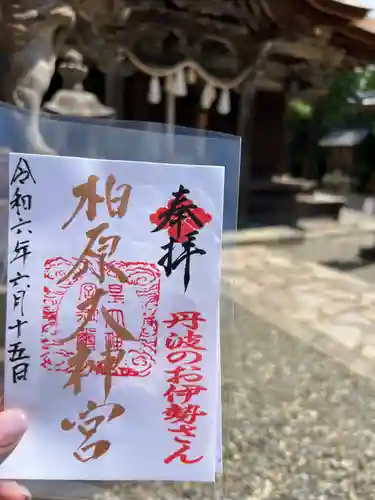 奉拝
丹波のお伊勢さん
柏原大神宮
令和六年六月十五日